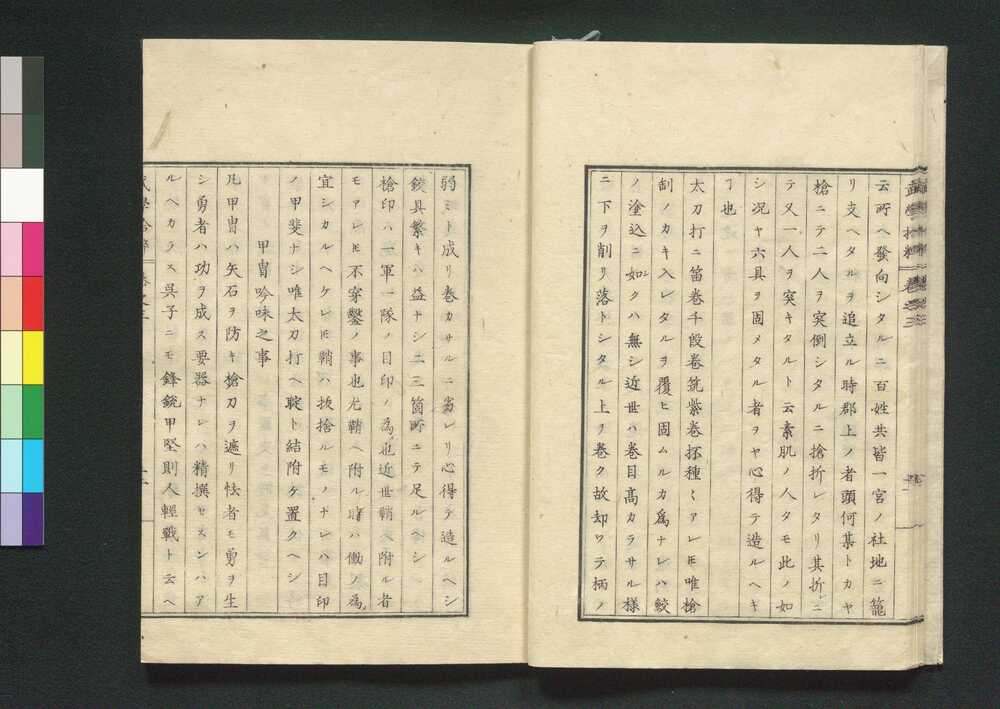 云所ヘ發向シタルニ百姓共皆一宮ノ社地ニ籠
リ支ヘタルヲ追立ル時郡上ノ者頭何某トカヤ
槍ニテ二人ヲ突倒シタルニ槍折レタリ其折レニ
テ又一人ヲ突キタルト云素肌ノ人タモ此ノ如
シ况ヤ六具ヲ固メタル者ヲヤ心得テ造ルヘキ
ヿ也
太刀打ニ笛卷千段卷筑紫卷抔種〱アレ𪜈唯槍
刮ノカキ入レタルヲ覆ヒ固ムルカ為ナレハ鮫
ノ塗込ニ如クハ無シ近世ハ卷目髙カラサル様
ニ下ヲ削リ落トシタル上ヲ卷ク故却ワテ柄ノ
弱ミト成リ卷カサルニ劣レリ心得テ造ルヘシ
鐃具繁キハ益ナシ二三箇所ニテ足ルヘシ
槍印ハ一軍一隊ノ目印ノ為也近世鞘ヘ附ル者
モアレ𪜈不穿鑿ノ事也尤鞘ヘ附ル時ハ働ノ為
宜シカルヘケレ𪜈鞘ハ抜捨ルモノナレハ目印
ノ甲斐ナシ唯太刀打ヘ聢ト結附ケ置クヘシ
甲冑吟味之事
凡甲冑ハ矢石ヲ防キ槍刀ヲ遮リ怯者モ勇ヲ生
シ勇者ハ功ヲ成ス要器ナレハ精撰セスンハア
ルヘカラス呉子ニモ鋒銳甲堅則人輕戰ト云ヘ